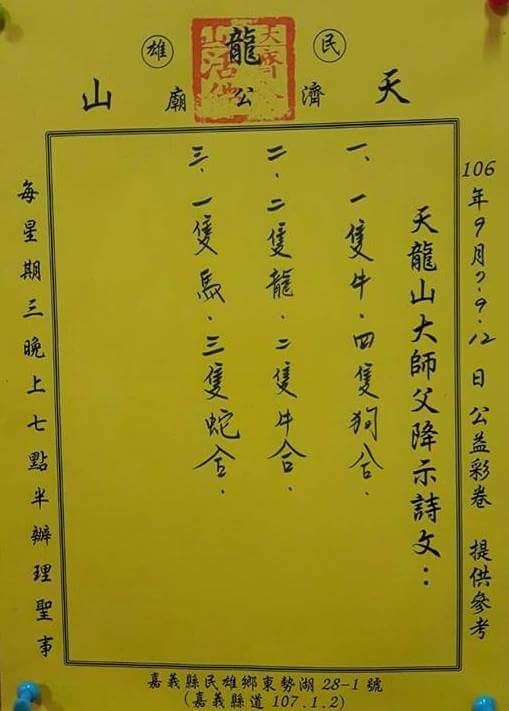 民雄
天龍山
濟公廟
106年9月7.9.12日 公益彩卷 提供參考
天龍山大師父降示詩文：
一、一隻牛．四隻狗合．
二、二隻龍．二隻牛合．
三、一隻馬．三隻蛇合．
每星期三晚上七點半辦理聖事
嘉義縣民雄鄉東勢湖28-1號
(嘉義縣道107.1.2)